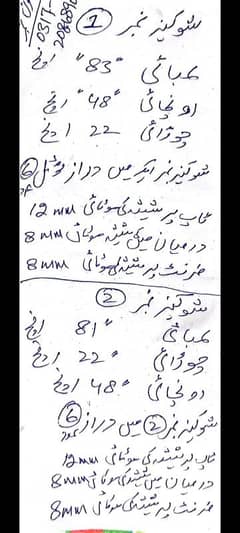 شوکیز نمبر 1
لمبائی "83" انچ
اونچائی "48" انچ
چوڑائی 22 انچ
شوکیز نمبر ایک میں دراز ٹوٹل 6
ٹاپ پر شیشہ کی موٹائی 12 mm
درمیان میں شیشہ موٹائی 8 mm
فرنٹ پر شیشہ کی موٹائی 8 mm
شوکیز نمبر 2
لمبائی "81 انچ
چوڑائی "22 انچ
اونچائی "48 انچ
شوکیز نمبر 2 میں دراز 6
ٹاپ پر شیشہ کی موٹائی 12mm
درمیان میں شیشہ کی موٹائی 8mm
فرنٹ پر شیشہ کی موٹائی 8mm